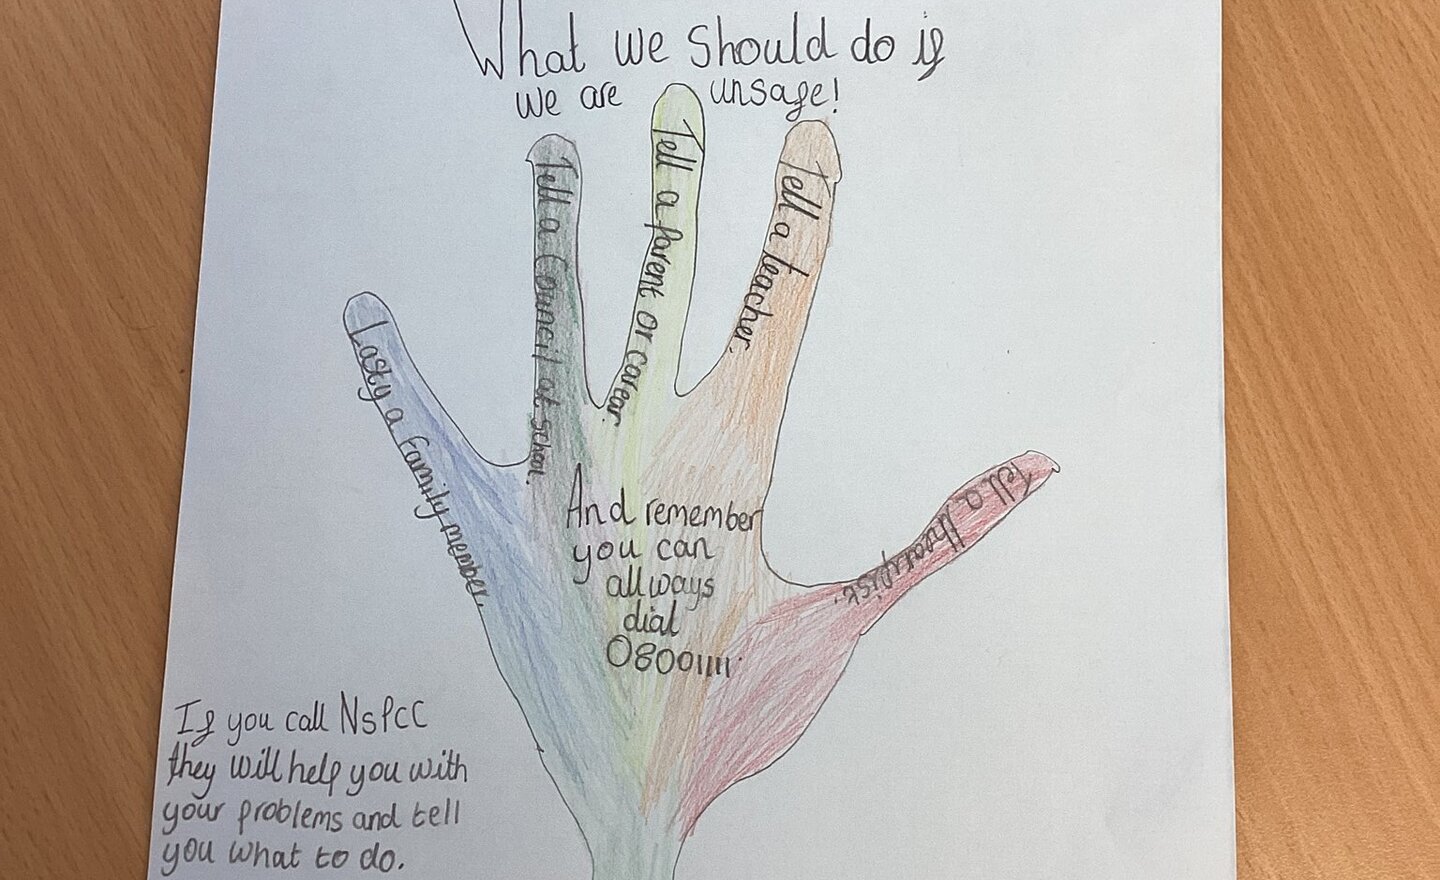 What we should do if
we are unsafe!
Lasty a family member.
Tell a Council at school.
Tell a Parent or carear.
Tell a teacher.
Tell a therapist.
And remember
you can
allways
dial
08001111.
If you call NSPCC
they will help you with
your problems and tell
you what to do.